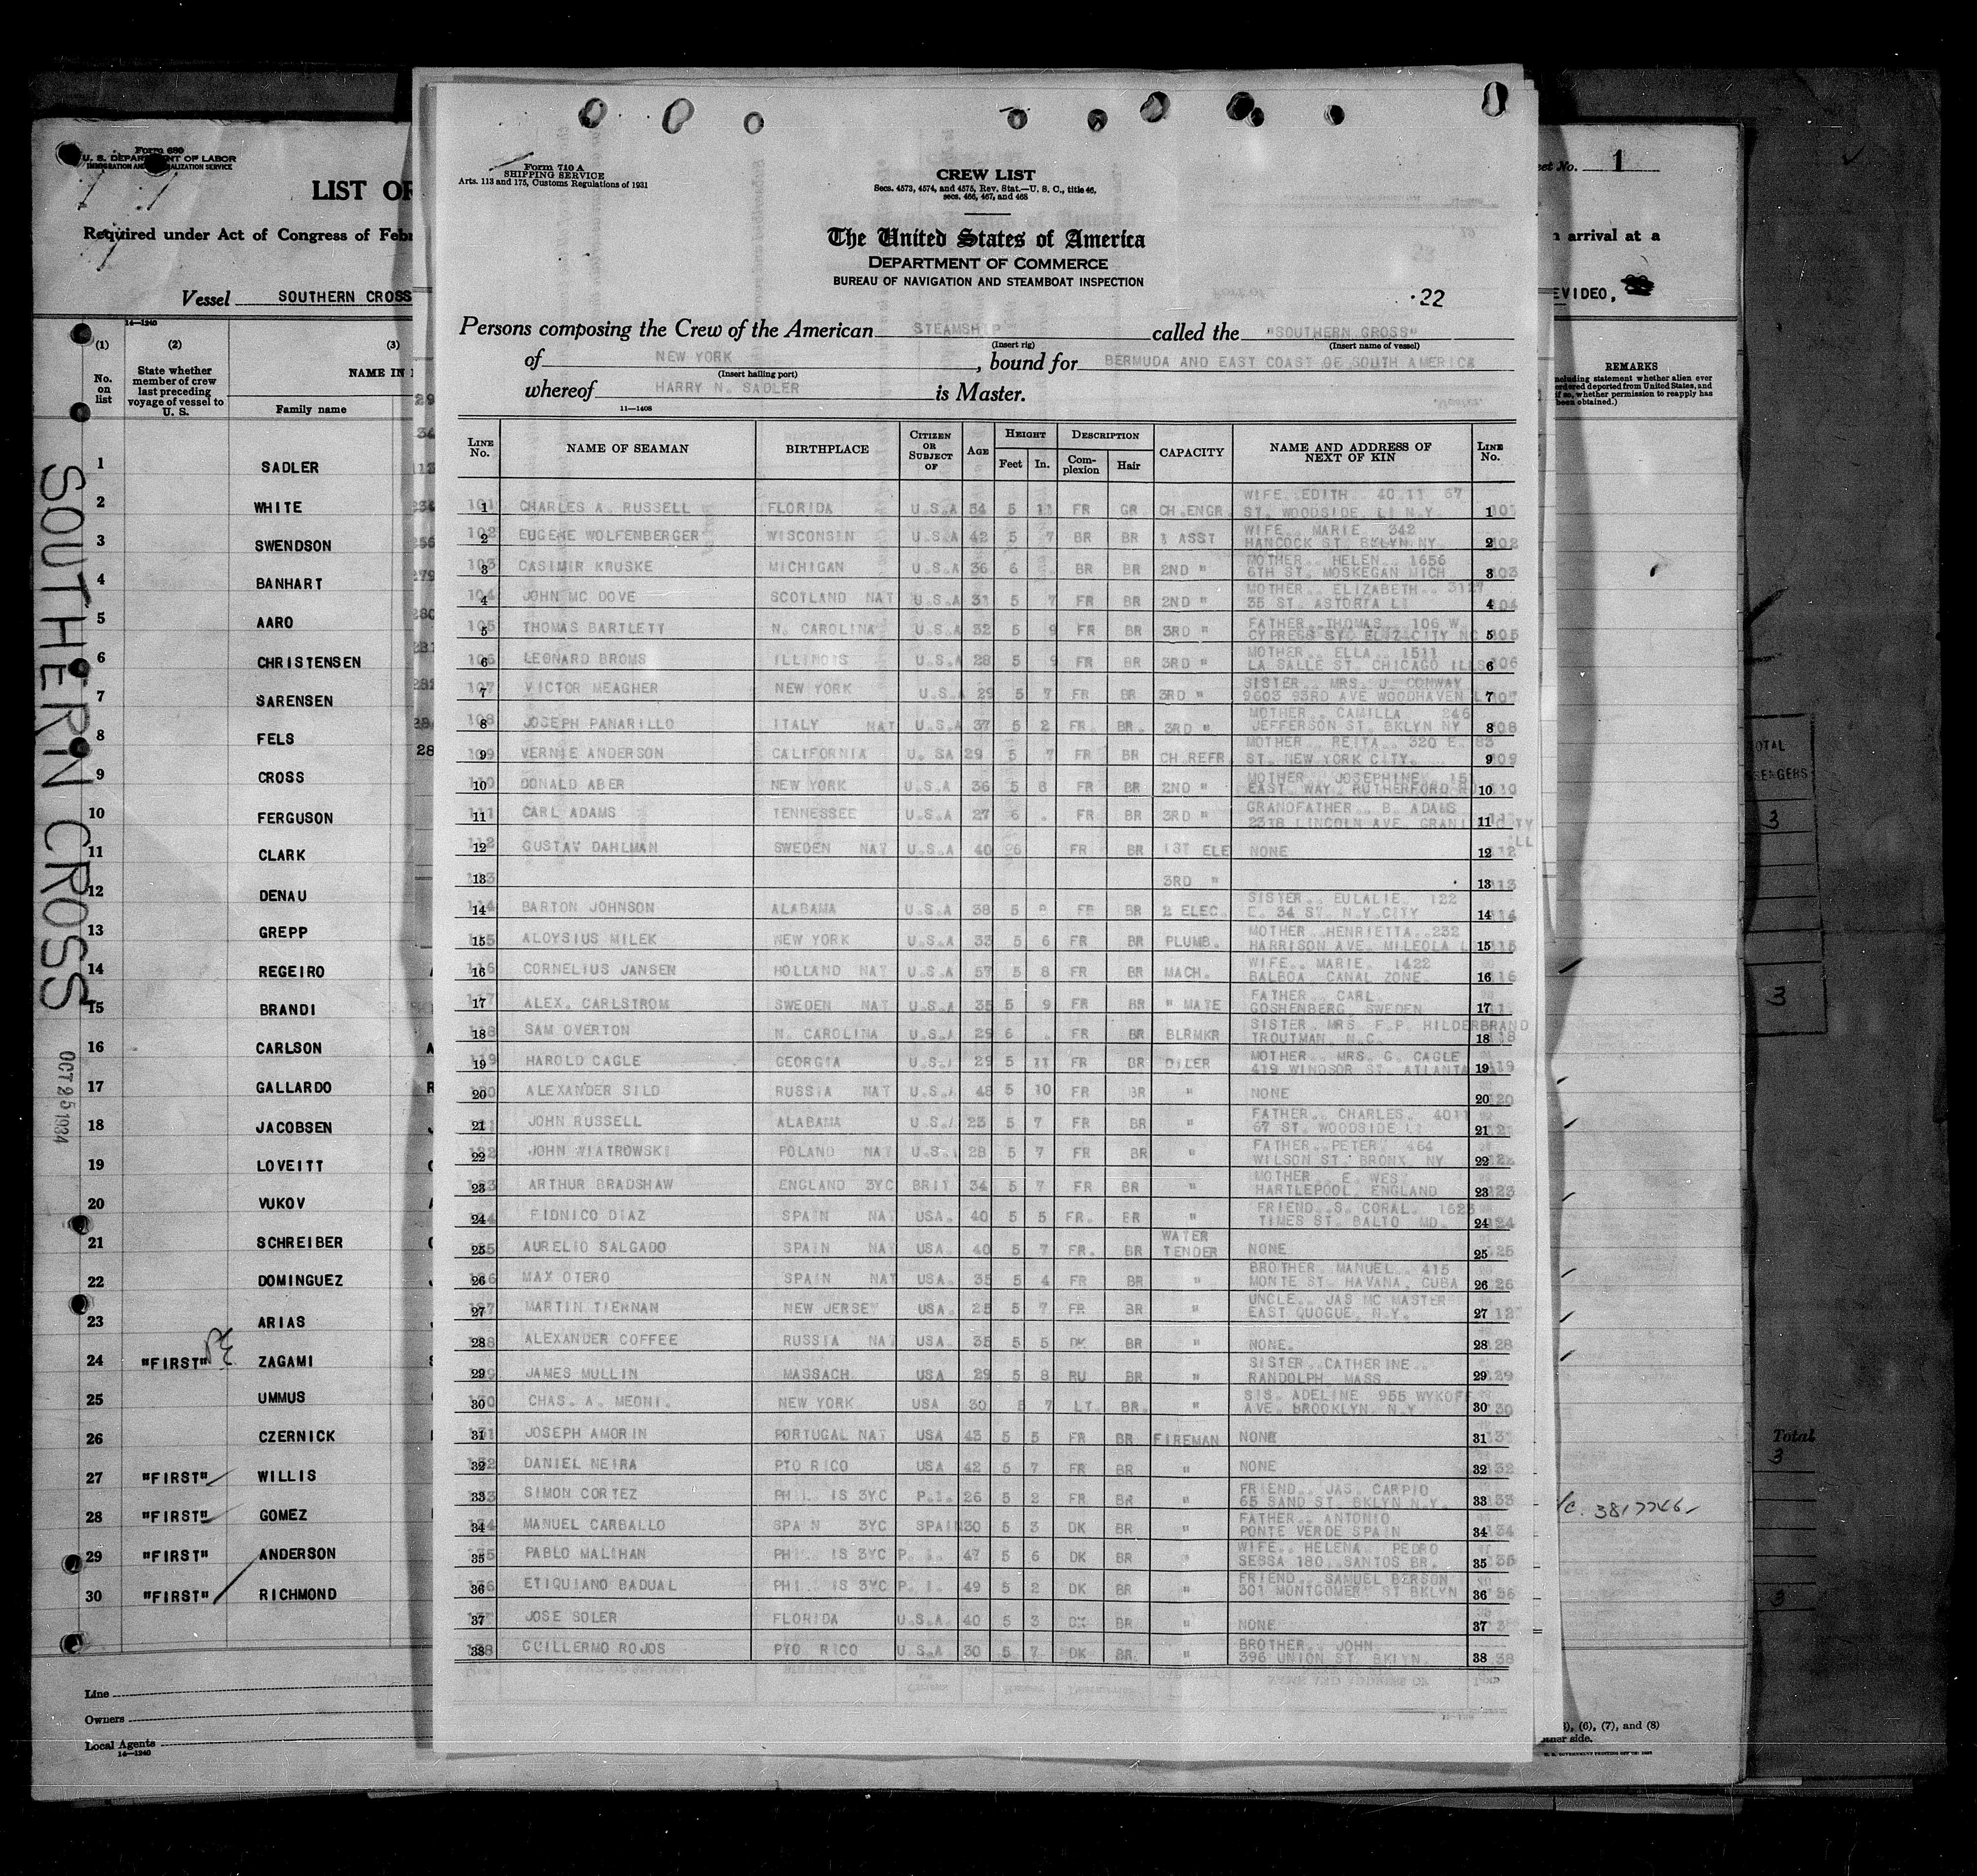 Form 680
U. S. DEPARTMENT OF LABOR
IMMIGRATION AND NATURALIZATION SERVICE
LIST OF
Required under Act of Congress of Febr
Vessel SOUTHERN CROSS
14—1240
(1) (2) (3)
No. on list
State whether member of crew last preceding voyage of vessel to U. S.
NAME IN
Family name
1 SADLER
2 WHITE
3 SWENDSON
4 BANHART
5 AARO
6 CHRISTENSEN
7 SARENSEN
8 FELS
9 CROSS
10 FERGUSON
11 CLARK
12 DENAU
13 GREPP
14 REGEIRO
15 BRANDI
16 CARLSON
17 GALLARDO
18 JACOBSEN
19 LOVEITT
20 VUKOV
21 SCHREIBER
22 DOMINGUEZ
23 ARIAS
24 "FIRST" ZAGAMI
25 UMMUS
26 CZERNICK
27 "FIRST" WILLIS
28 "FIRST" GOMEZ
29 "FIRST" ANDERSON
30 "FIRST" RICHMOND
Line
Owners
Local Agents
14—1240
SOUTHERN CROSS
OCT 25 1934
Form 710 A
SHIPPING SERVICE
Arts. 113 and 175, Customs Regulations of 1931
CREW LIST
Secs. 4573, 4574, and 4575, Rev. Stat.—U. S. C., title 46,
secs. 466, 467, and 468
The United States of America
DEPARTMENT OF COMMERCE
BUREAU OF NAVIGATION AND STEAMBOAT INSPECTION
22
Persons composing the Crew of the American STEAMSHIP called the "SOUTHERN CROSS"
(Insert rig) (Insert name of vessel)
of NEW YORK, bound for BERMUDA AND EAST COAST OF SOUTH AMERICA
(Insert hailing port)
whereof HARRY N. SADLER is Master.
11—1408
LINE No. NAME OF SEAMAN BIRTHPLACE CITIZEN OR SUBJECT OF AGE HEIGHT Feet In. DESCRIPTION Complexion Hair CAPACITY NAME AND ADDRESS OF NEXT OF KIN LINE No.
WIFE. EDITH. 40 11 67
1 CHARLES A. RUSSELL FLORIDA U.S.A 54 5 11 FR GR CH.ENGR. ST. WOODSIDE. LI N.Y. 1
WIFE. MARIE 342
2 EUGENE WOLFENBERGER WISCONSIN U.S.A 42 5 7 BR BR 1 ASST HANCOCK ST. BKLYN NY. 2
MOTHER. HELEN. 1656
3 CASIMIR KRUSKE MICHIGAN U.S.A 36 6 BR BR 2ND " 6TH ST. MOSKEGAN MICH 3
MOTHER. ELIZABETH. 3127
4 JOHN MC DOVE SCOTLAND NAT U.S.A 31 5 7 FR BR 2ND " 35 ST. ASTORIA LI 4
FATHER. THOMAS. 106 W.
5 THOMAS BARTLETT N. CAROLINA U.S.A 32 5 9 FR BR 3RD " CYPRESS ST. ELIZ.CITY NC 5
MOTHER. ELLA. 1511
6 LEONARD BROMS ILLINOIS U.S.A 28 5 9 FR BR 3RD " LA SALLE ST. CHICAGO ILLS 6
SISTER. MRS. J. CONWAY
7 VICTOR MEAGHER NEW YORK U.S.A 29 5 7 FR BR 3RD " 9603 93RD AVE WOODHAVEN L 7
MOTHER. CAMILLA 246
8 JOSEPH PANARILLO ITALY NAT U.S.A 37 5 2 FR. BR. 3RD " JEFFERSON ST. BKLYN NY 8
MOTHER. REITA. 320 E. 83
9 VERNIE ANDERSON CALIFORNIA U.SA 29 5 7 FR BR CH.REFR. ST. NEW YORK CITY. 9
MOTHER. JOSEPHINE. 15
10 DONALD ABER NEW YORK U.S.A 36 5 8 FR BR 2ND " EAST. WAY. RUTHERFORD 10
GRANDFATHER. B. ADAMS
11 CARL ADAMS TENNESSEE U.S.A 27 6 . FR BR 3RD " 2318 LINCOLN AVE. 11
12 GUSTAV DAHLMAN SWEDEN NAT U.S.A 40 6 FR BR 1ST ELE NONE 12
13 3RD " 13
SISTER. EULALIE. 122
14 BARTON JOHNSON ALABAMA U.S.A 38 5 9 FR BR 2 ELEC. E. 34 ST. N.Y.CITY 14
MOTHER. HENRIETTA. 232
15 ALOYSIUS MILEK NEW YORK U.S.A 33 5 6 FR BR PLUMB. HARRISON AVE. MILEOLA L 15
WIFE. MARIE. 1422
16 CORNELIUS JANSEN HOLLAND NAT U.S.A 57 5 8 FR BR MACH. BALBOA. CANAL ZONE. 16
FATHER. CARL.
17 ALEX. CARLSTROM SWEDEN NAT U.S.A 35 5 9 FR BR " MATE GOSHENBERG. SWEDEN 17
SISTER. MRS. F.P. HILDERBRAND
18 SAM OVERTON N. CAROLINA U.S.A 29 6 . FR BR BLRMKR TROUTMAN. N.C. 18
MOTHER. MRS. G. CAGLE
19 HAROLD CAGLE GEORGIA U.S. 29 5 11 FR BR OILER 419 WINDSOR ST. ATLANTA 19
20 ALEXANDER SILD RUSSIA NAT U.S. 48 5 10 FR BR " NONE 20
FATHER. CHARLES. 4011
21 JOHN RUSSELL ALABAMA U.S. 23 5 7 FR BR " 67 ST. WOODSIDE LI 21
FATHER. PETER. 464
22 JOHN WIATROWSKI POLAND NAT U.S. 28 5 7 FR BR " WILSON ST. BRONX. NY 22
MOTHER. E. WEST
23 ARTHUR BRADSHAW ENGLAND 3YC BRIT 34 5 7 FR BR " HARTLEPOOL. ENGLAND 23
FRIEND. S. CORAL. 1623
24 FIDNICO DIAZ SPAIN NAT USA. 40 5 5 FR. BR " TIMES ST. BALTO MD. 24
25 AURELIO SALGADO SPAIN NAT USA. 40 5 7 FR. BR WATER TENDER NONE 25
BROTHER. MANUEL. 415
26 MAX OTERO SPAIN NAT USA. 35 5 4 FR BR " MONTE ST. HAVANA. CUBA 26
UNCLE. JAS MC MASTER
27 MARTIN TIERNAN NEW JERSEY USA. 25 5 7 FR BR " EAST QUOGUE. N.Y. 27
28 ALEXANDER COFFEE RUSSIA NAT USA. 35 5 5 DK BR " NONE. 28
SISTER. CATHERINE.
29 JAMES MULLIN MASSACH. USA 29 5 8 RU BR " RANDOLPH. MASS. 29
SIS. ADELINE 955 WYKOFF
30 CHAS. A. MEONI. NEW YORK USA 30 5 7 LT. BR. " AVE. BROOKLYN. N.Y. 30
31 JOSEPH AMORIN PORTUGAL NAT USA 43 5 5 FR BR FIREMAN NONE 31
32 DANIEL NEIRA PTO RICO USA 42 5 7 FR BR " NONE 32
FRIEND. JAS. CARPIO
33 SIMON CORTEZ PHIL. IS 3YC P.I. 26 5 2 FR BR " 65 SAND ST. BKLYN N.Y. 33
FATHER. ANTONIO
34 MANUEL CARBALLO SPAIN 3YC SPAIN 30 5 3 DK BR " PONTE VERDE SPAIN 34
WIFE. HELENA. PEDRO
35 PABLO MALIHAN PHI. IS 3YC P.I. 47 5 6 DK BR " SESSA 180. SANTOS BR. 35
FRIEND. SAMUEL BERSON
36 ETIQUIANO BADUAL PHI. IS 3YC P.I. 49 5 2 DK BR " 301 MONTGOMERY ST BKLYN 36
37 JOSE SOLER FLORIDA U.S.A. 40 5 3 DK BR " NONE 37
BROTHER. JOHN.
38 GUILLERMO ROJOS PTO RICO U.S.A 30 5 7 DK BR. " 396 UNION ST. BKLYN. 38
et No. 1
arrival at a
EVIDEO,
REMARKS
(Including statement whether alien ever
ordered deported from United States, and
if so, whether permission to reapply has
been obtained.)
3
3
Total
3
3
(6), (7), and (8)